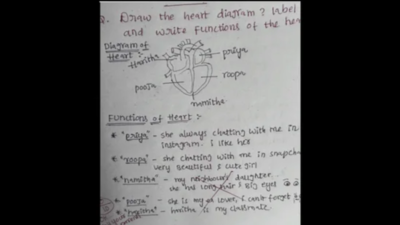 Q. Draw the heart diagram? label
and write functions of the hea
Diagram of
Heart :-
Haritha
priya
roopa
pooja
namitha
Functions of Heart :-
* "priya" - she always chatting with me in
instagram. i like her
* "roopa" - she chatting with me in snapcha
very beautiful & cute girl
* "namitha" - my neighbour's daughter.
long hair & Big eyes
* "pooja" - she is my lover, i can't forget
* "Haritha" - is my classmate